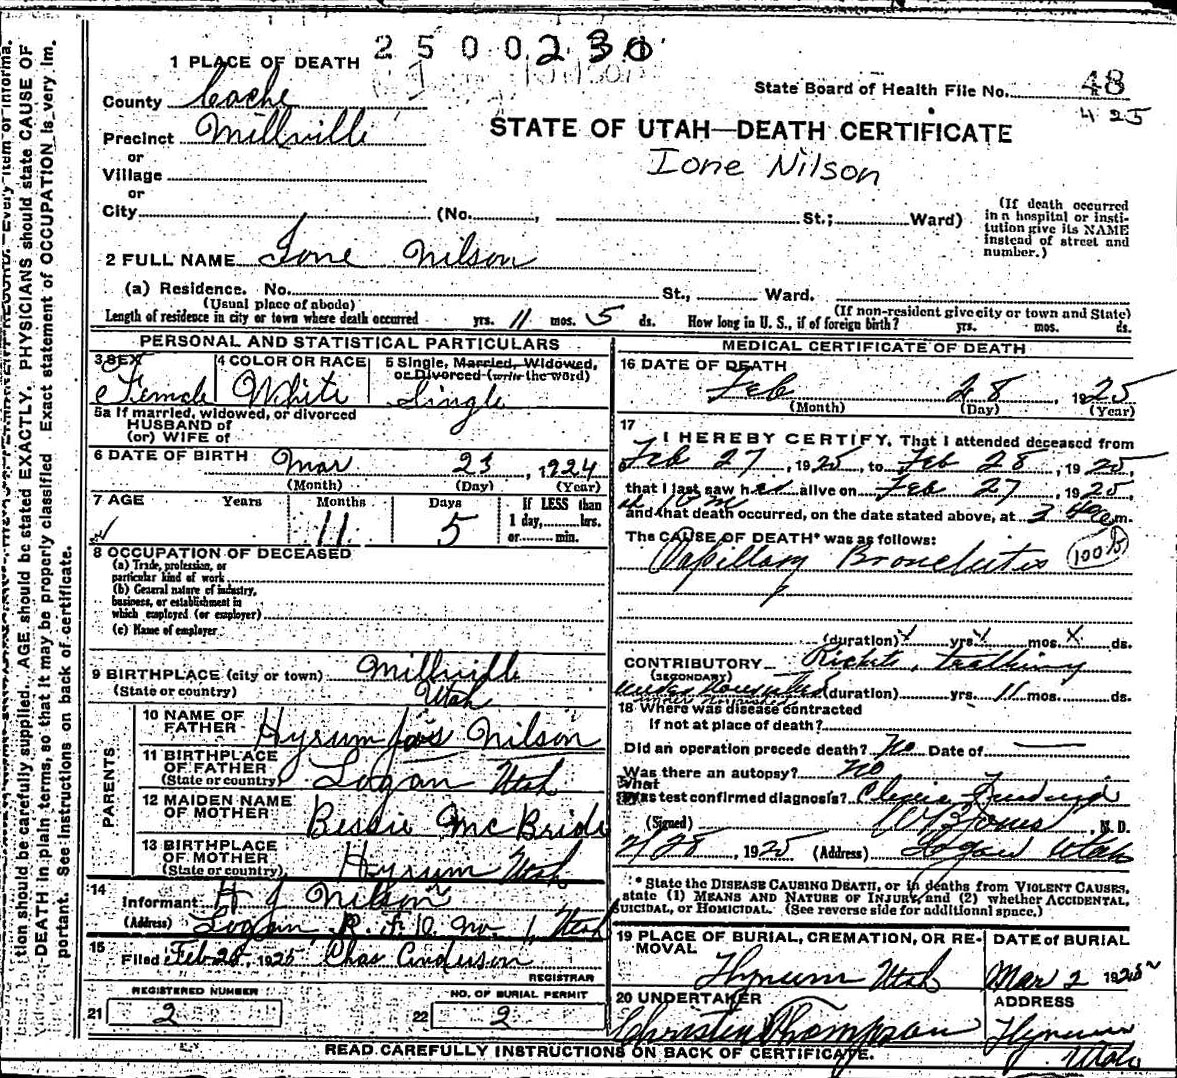 2500230
1 PLACE OF DEATH
State Board of Health File No. 48
425
County Cache
STATE OF UTAH—DEATH CERTIFICATE
Precinct Millville
Ione Nilson
or
Village
or
City (No. , St.; Ward)
(If death occurred
in a hospital or insti-
tution give its NAME
instead of street and
number.)
2 FULL NAME Ione Nilson
(a) Residence. No. St., Ward.
(Usual place of abode) (If non-resident give city or town and State)
Length of residence in city or town where death occurred yrs. 11 mos. 5 ds. How long in U. S., if of foreign birth? yrs. mos. ds.
PERSONAL AND STATISTICAL PARTICULARS
3 SEX 4 COLOR OR RACE 5 Single, Married, Widowed,
or Divorced (write the word)
Female White Single
5a If married, widowed, or divorced
HUSBAND of
(or) WIFE of
6 DATE OF BIRTH Mar 23, 1924
(Month) (Day) (Year)
7 AGE Years Months Days If LESS than
11 5 1 day, hrs.
or min.
8 OCCUPATION OF DECEASED
(a) Trade, profession, or
particular kind of work
(b) General nature of industry,
business, or establishment in
which employed (or employer)
(c) Name of employer
9 BIRTHPLACE (city or town) Millville
(State or country) Utah
PARENTS
10 NAME OF
FATHER Hyrum Jos Nilson
11 BIRTHPLACE
OF FATHER
(State or country) Logan Utah
12 MAIDEN NAME
OF MOTHER Bessie McBride
13 BIRTHPLACE
OF MOTHER
(State or country) Hyrum Utah
14
Informant H J Nilson
(Address) Logan R. F. D. No. 1, Utah
15
Filed Feb 28, 1925 Chas Anderson
REGISTRAR
REGISTERED NUMBER NO. OF BURIAL PERMIT
21 2 22 2
MEDICAL CERTIFICATE OF DEATH
16 DATE OF DEATH
Feb 28, 1925
(Month) (Day) (Year)
17
I HEREBY CERTIFY, That I attended deceased from
Feb 27, 1925, to Feb 28, 1925,
that I last saw her alive on Feb 27, 1925,
and that death occurred, on the date stated above, at m.
The CAUSE OF DEATH* was as follows:
Capillary Bronchitis
(duration) x yrs x mos. x ds.
CONTRIBUTORY Rickets, teething
(SECONDARY)
under nourished (duration) yrs. 11 mos. ds.
18 Where was disease contracted
If not at place of death?
Did an operation precede death? No Date of
Was there an autopsy? No
What test confirmed diagnosis?
(Signed) , M. D.
2/28, 1925 (Address) Logan Utah
* State the DISEASE CAUSING DEATH, or in deaths from VIOLENT CAUSES,
state (1) MEANS AND NATURE OF INJURY, and (2) whether ACCIDENTAL,
SUICIDAL, or HOMICIDAL. (See reverse side for additional space.)
19 PLACE OF BURIAL, CREMATION, OR RE-
MOVAL DATE OF BURIAL
Hyrum Utah Mar 2 1925
20 UNDERTAKER ADDRESS
Christen Thompson Hyrum
Utah
READ CAREFULLY INSTRUCTIONS ON BACK OF CERTIFICATE.
tion should be carefully supplied. AGE should be stated EXACTLY. PHYSICIANS should state CAUSE OF
DEATH in plain terms, so that it may be properly classified. Exact statement of OCCUPATION is very im-
portant. See instructions on back of certificate.